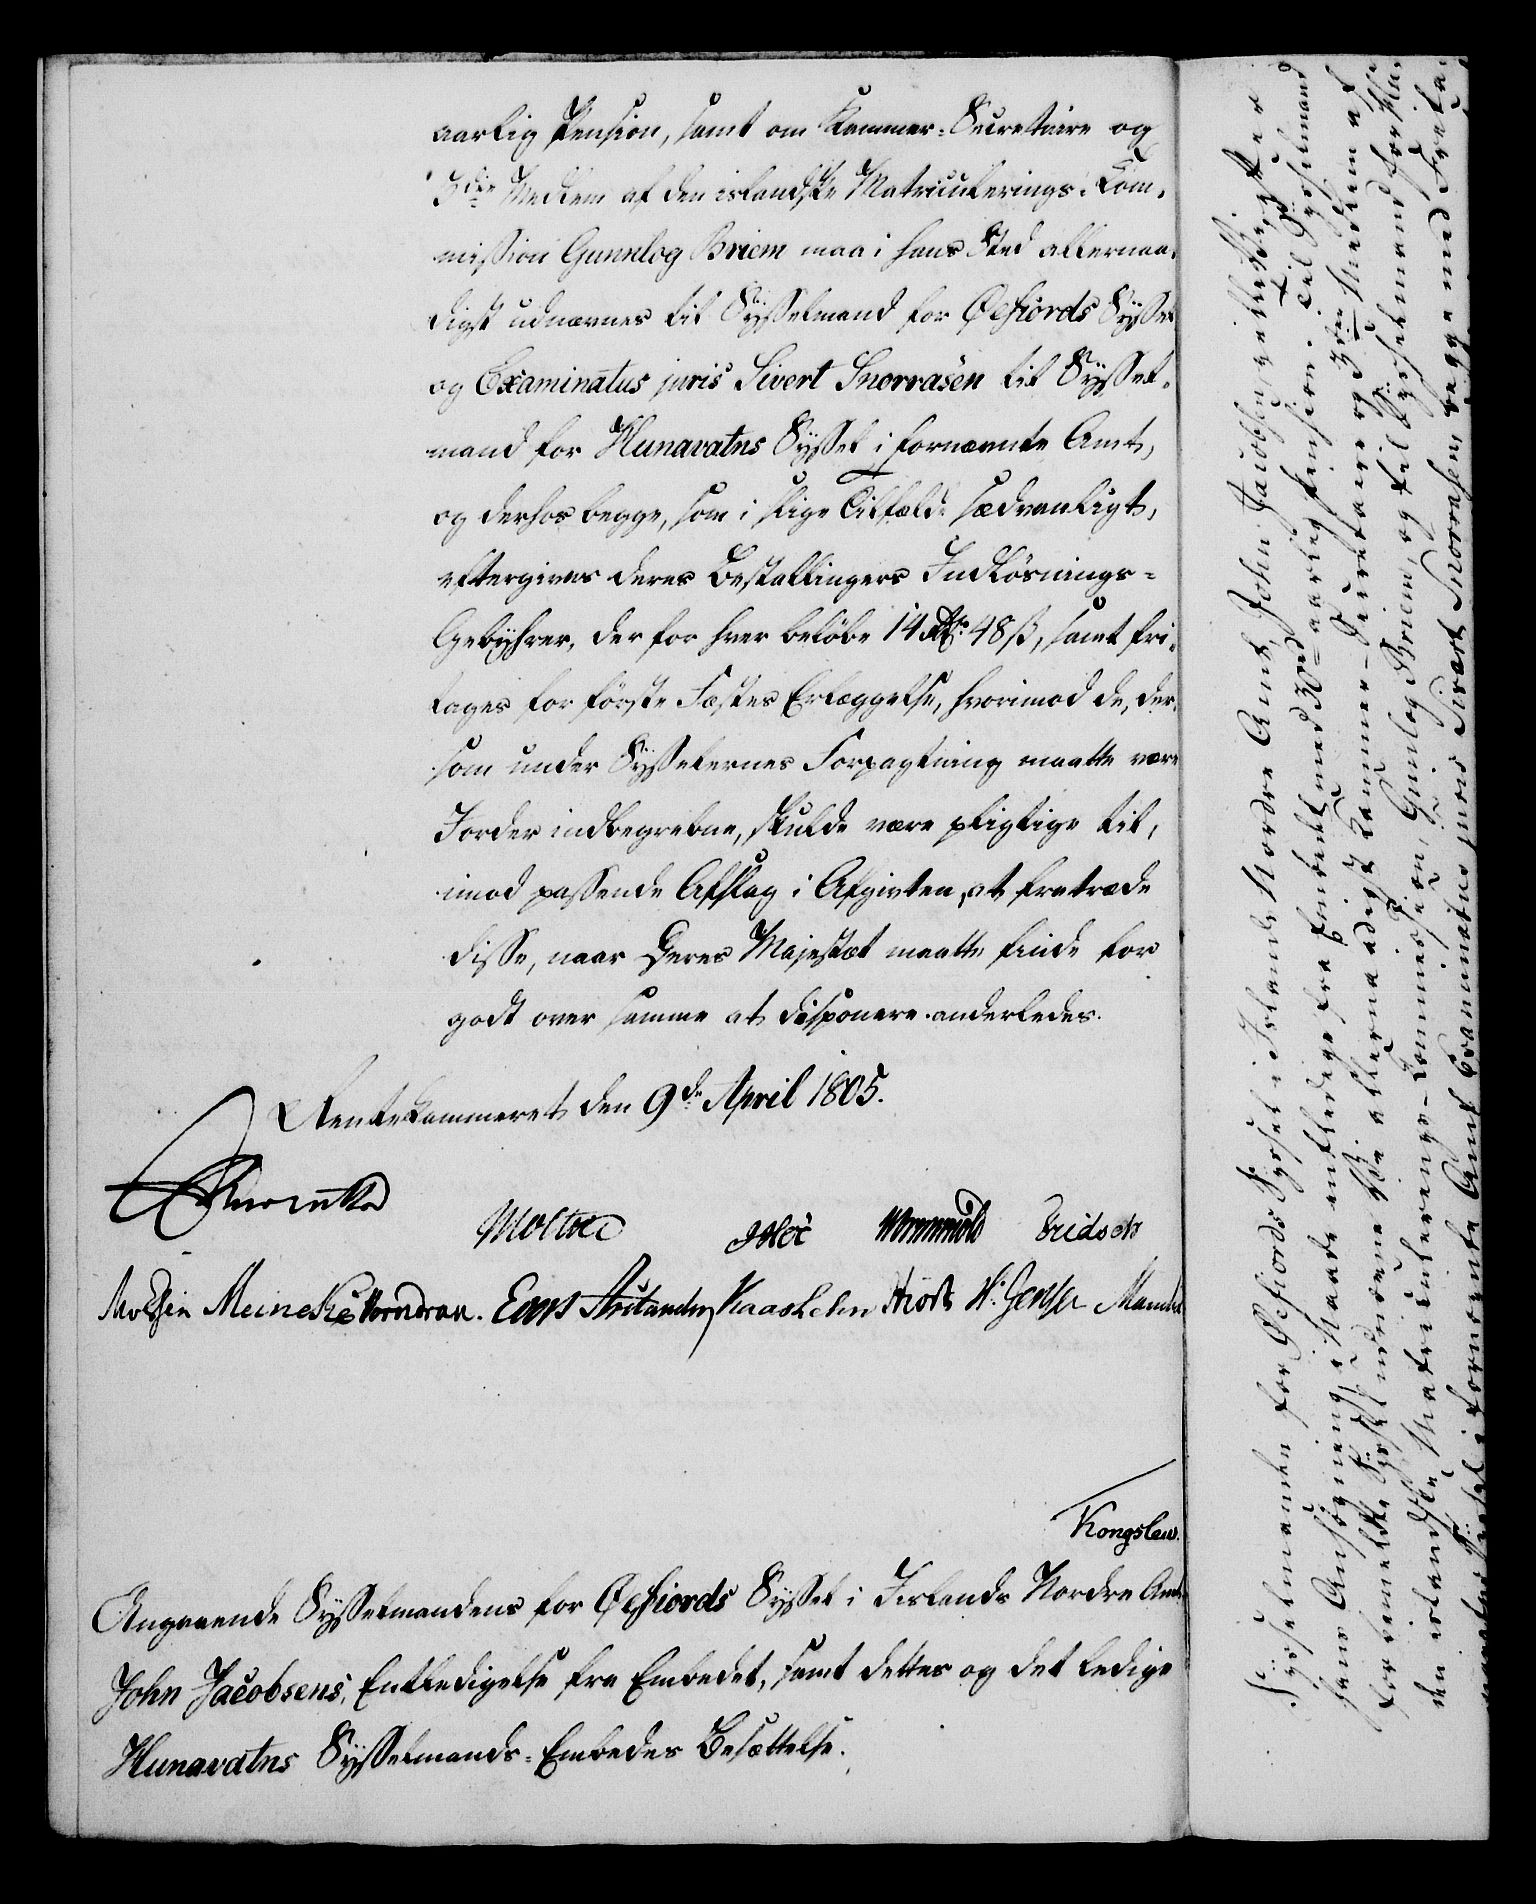 aarlig Pension, samt om Kammer-Secretaire og
3die Medlem af den islandske Matriculerings-Com-
mission Gunnlog Briem maa i hans Sted allernaa-
digst udnævnes til Sysselmand for Øefiords Syssel
og Examinatus juris Sivert Snorrasen til Syssel-
mand for Hunavatns Syssel i fornævnte Amt,
og derhos begge, som i slige Tilfælde sædvanligt,
eftergives deres Bestallingers Indløsnings-
Gebyhrer, der for hver beløbe 14 Rdr 48 ß, samt fri-
tages for første Fæstes Erlæggelse, hvorimod de, der-
som under Sysselernes Forpagtning maatte være
Jorder indbegrebne, skulde være pligtige til,
imod passende Afslag i Afgivten, at fratræde
disse, naar Deres Majestæt maatte finde for
godt over samme at disponere anderledes.
Rentekammeret den 9de April 1805.
Moltke
Meineke Korndran.
Kongslew.
Angaaende Sysselmandens for Øefiords Syssel i Islands Nordre Amt
John Jacobsens, Entledigelse fra Embedet, samt dettes og det ledige
Hunavatns Sysselmands-Embedes Besættelse.
Sysselmanden for Øefiords Syssel i Islands Nordre Amt, John Jacobsen,
hans Ansøgning i Naade entlediges fra Embedet med 30 aarlig Pension.
for bemeldte Syssel udnævne Vi allernaadigst Kammer-Secretaire og 3die Medlem af
den islandske Matriculerings-Commission, Gunlog Briem, og til Sysselmand for
Syssel i fornævnte Amt Examinatus juris Sivert Snorrasen, begge med